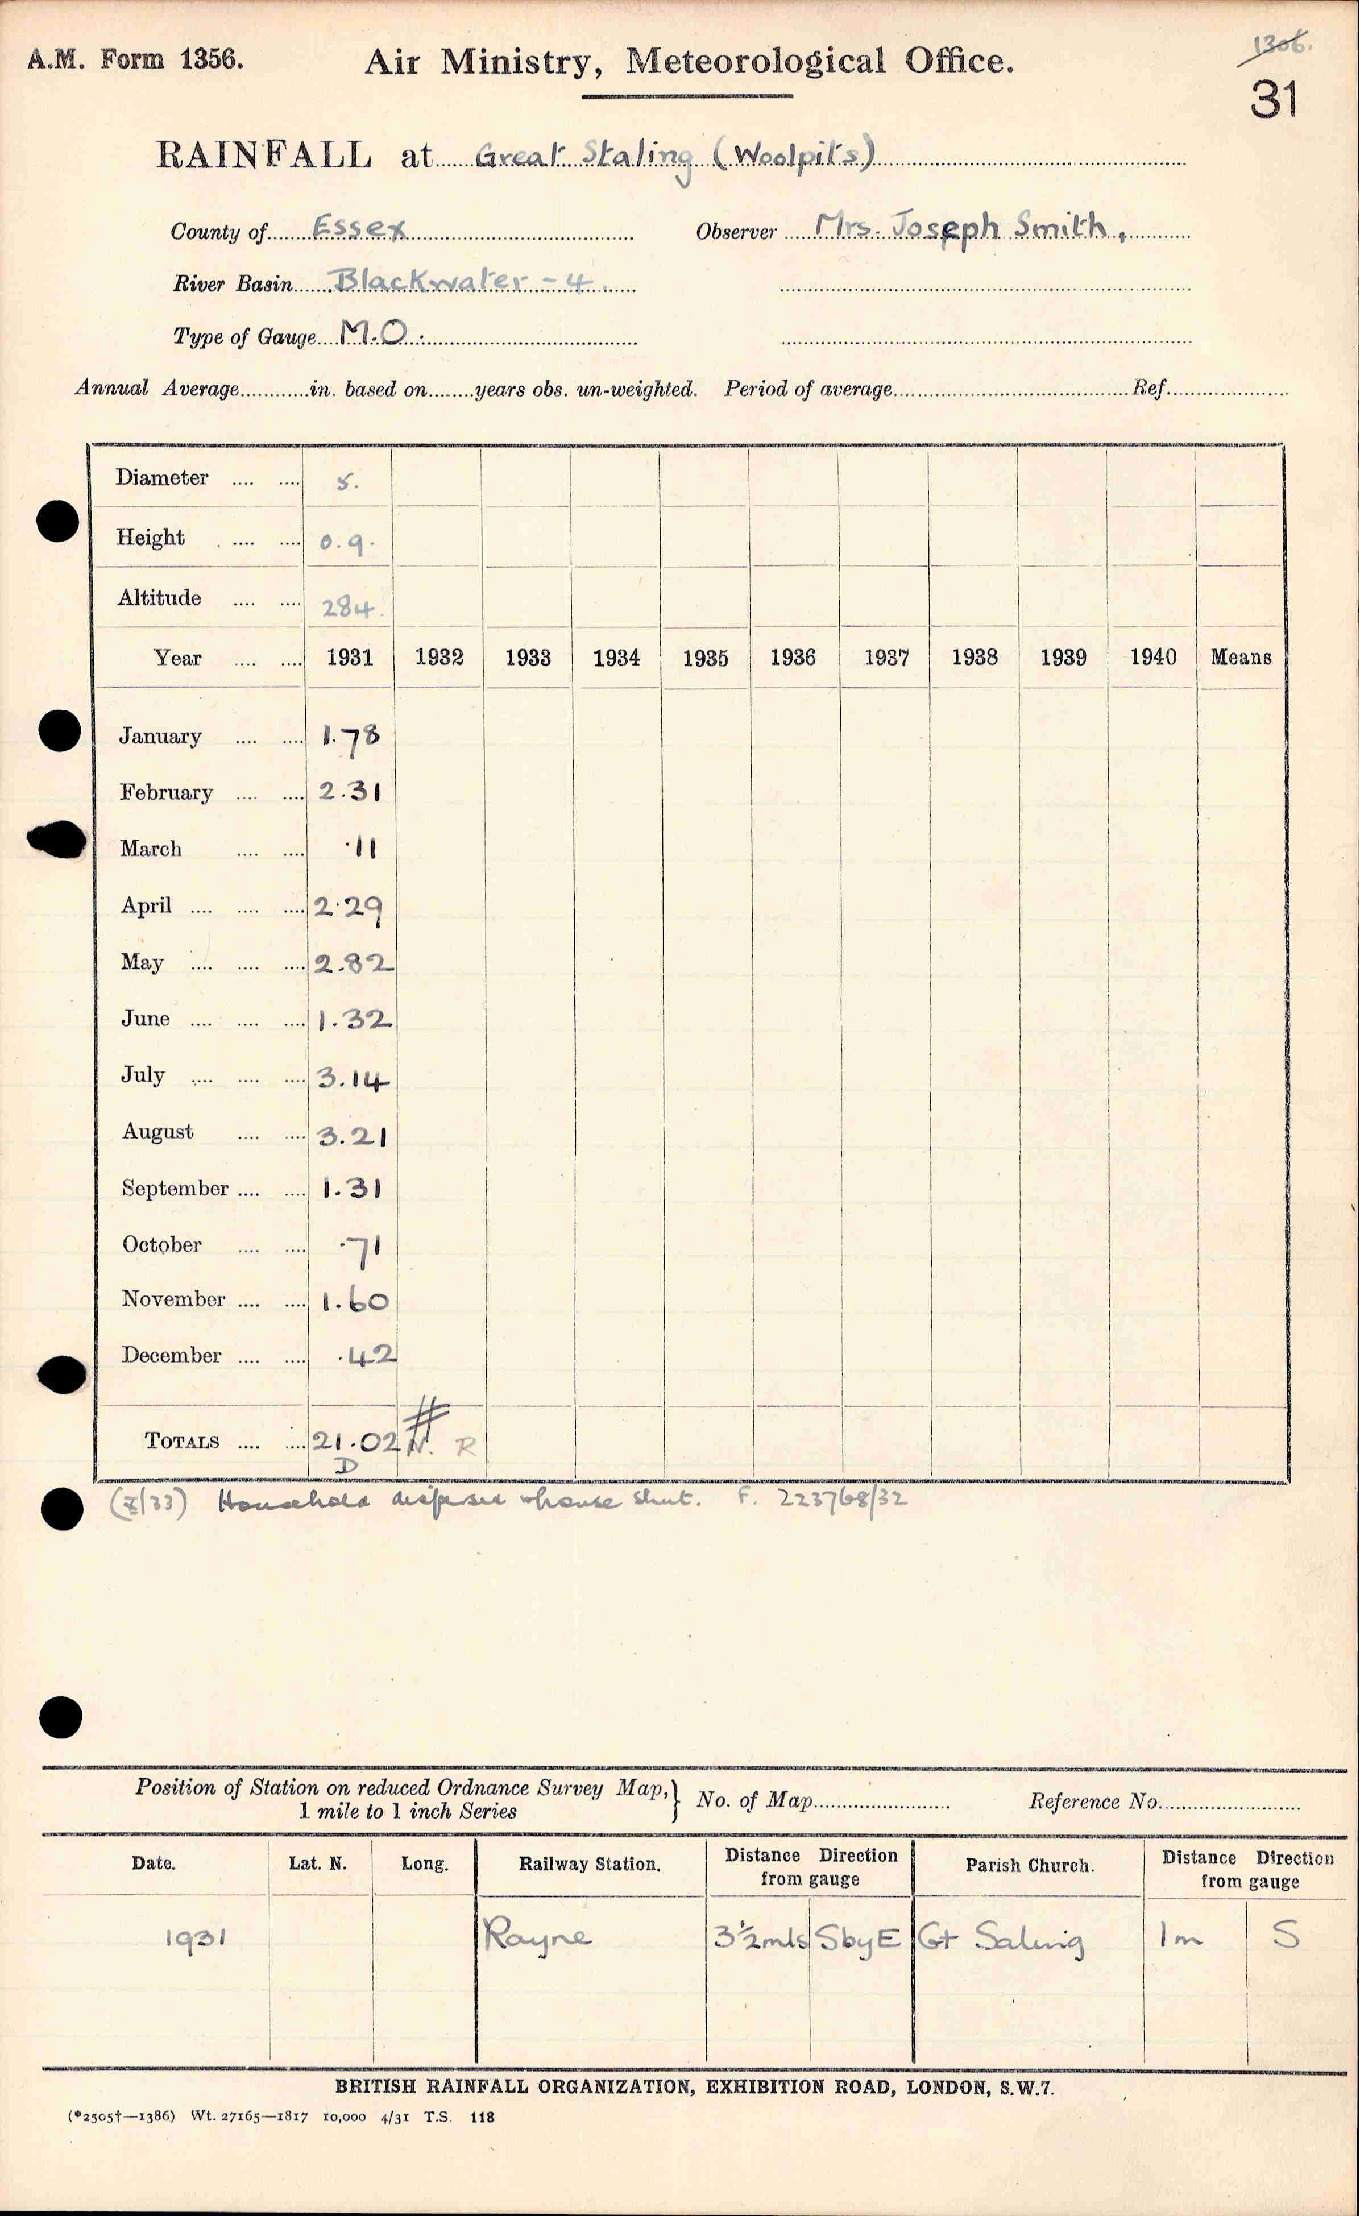 A.M. Form 1356.
Air Ministry, Meteorological Office.
1306.
31
RAINFALL at Great Staling (Woolpits)
County of Essex Observer Mrs. Joseph Smith,
River Basin Blackwater - 4.
Type of Gauge M.O.
Annual Average in. based on years obs. un-weighted. Period of average Ref.
Diameter 5.
Height 0.9.
Altitude 284.
Year 1931 1932 1933 1934 1935 1936 1937 1938 1939 1940 Means
January 1.78
February 2.31
March .11
April 2.29
May 2.82
June 1.32
July 3.14
August 3.21
September 1.31
October .71
November 1.60
December .42
TOTALS 21.02 # N. R
D
Household dispersed & house shut. F. 223768/32
Position of Station on reduced Ordnance Survey Map,} No. of Map Reference No.
1 mile to 1 inch Series
Date. Lat. N. Long. Railway Station. Distance Direction from gauge Parish Church. Distance Direction from gauge
1931 Rayne 3½mls S by E Gt Saling 1m S
BRITISH RAINFALL ORGANIZATION, EXHIBITION ROAD, LONDON, S.W.7.
(*2505†—1386) Wt. 27165—1817 10,000 4/31 T.S. 118